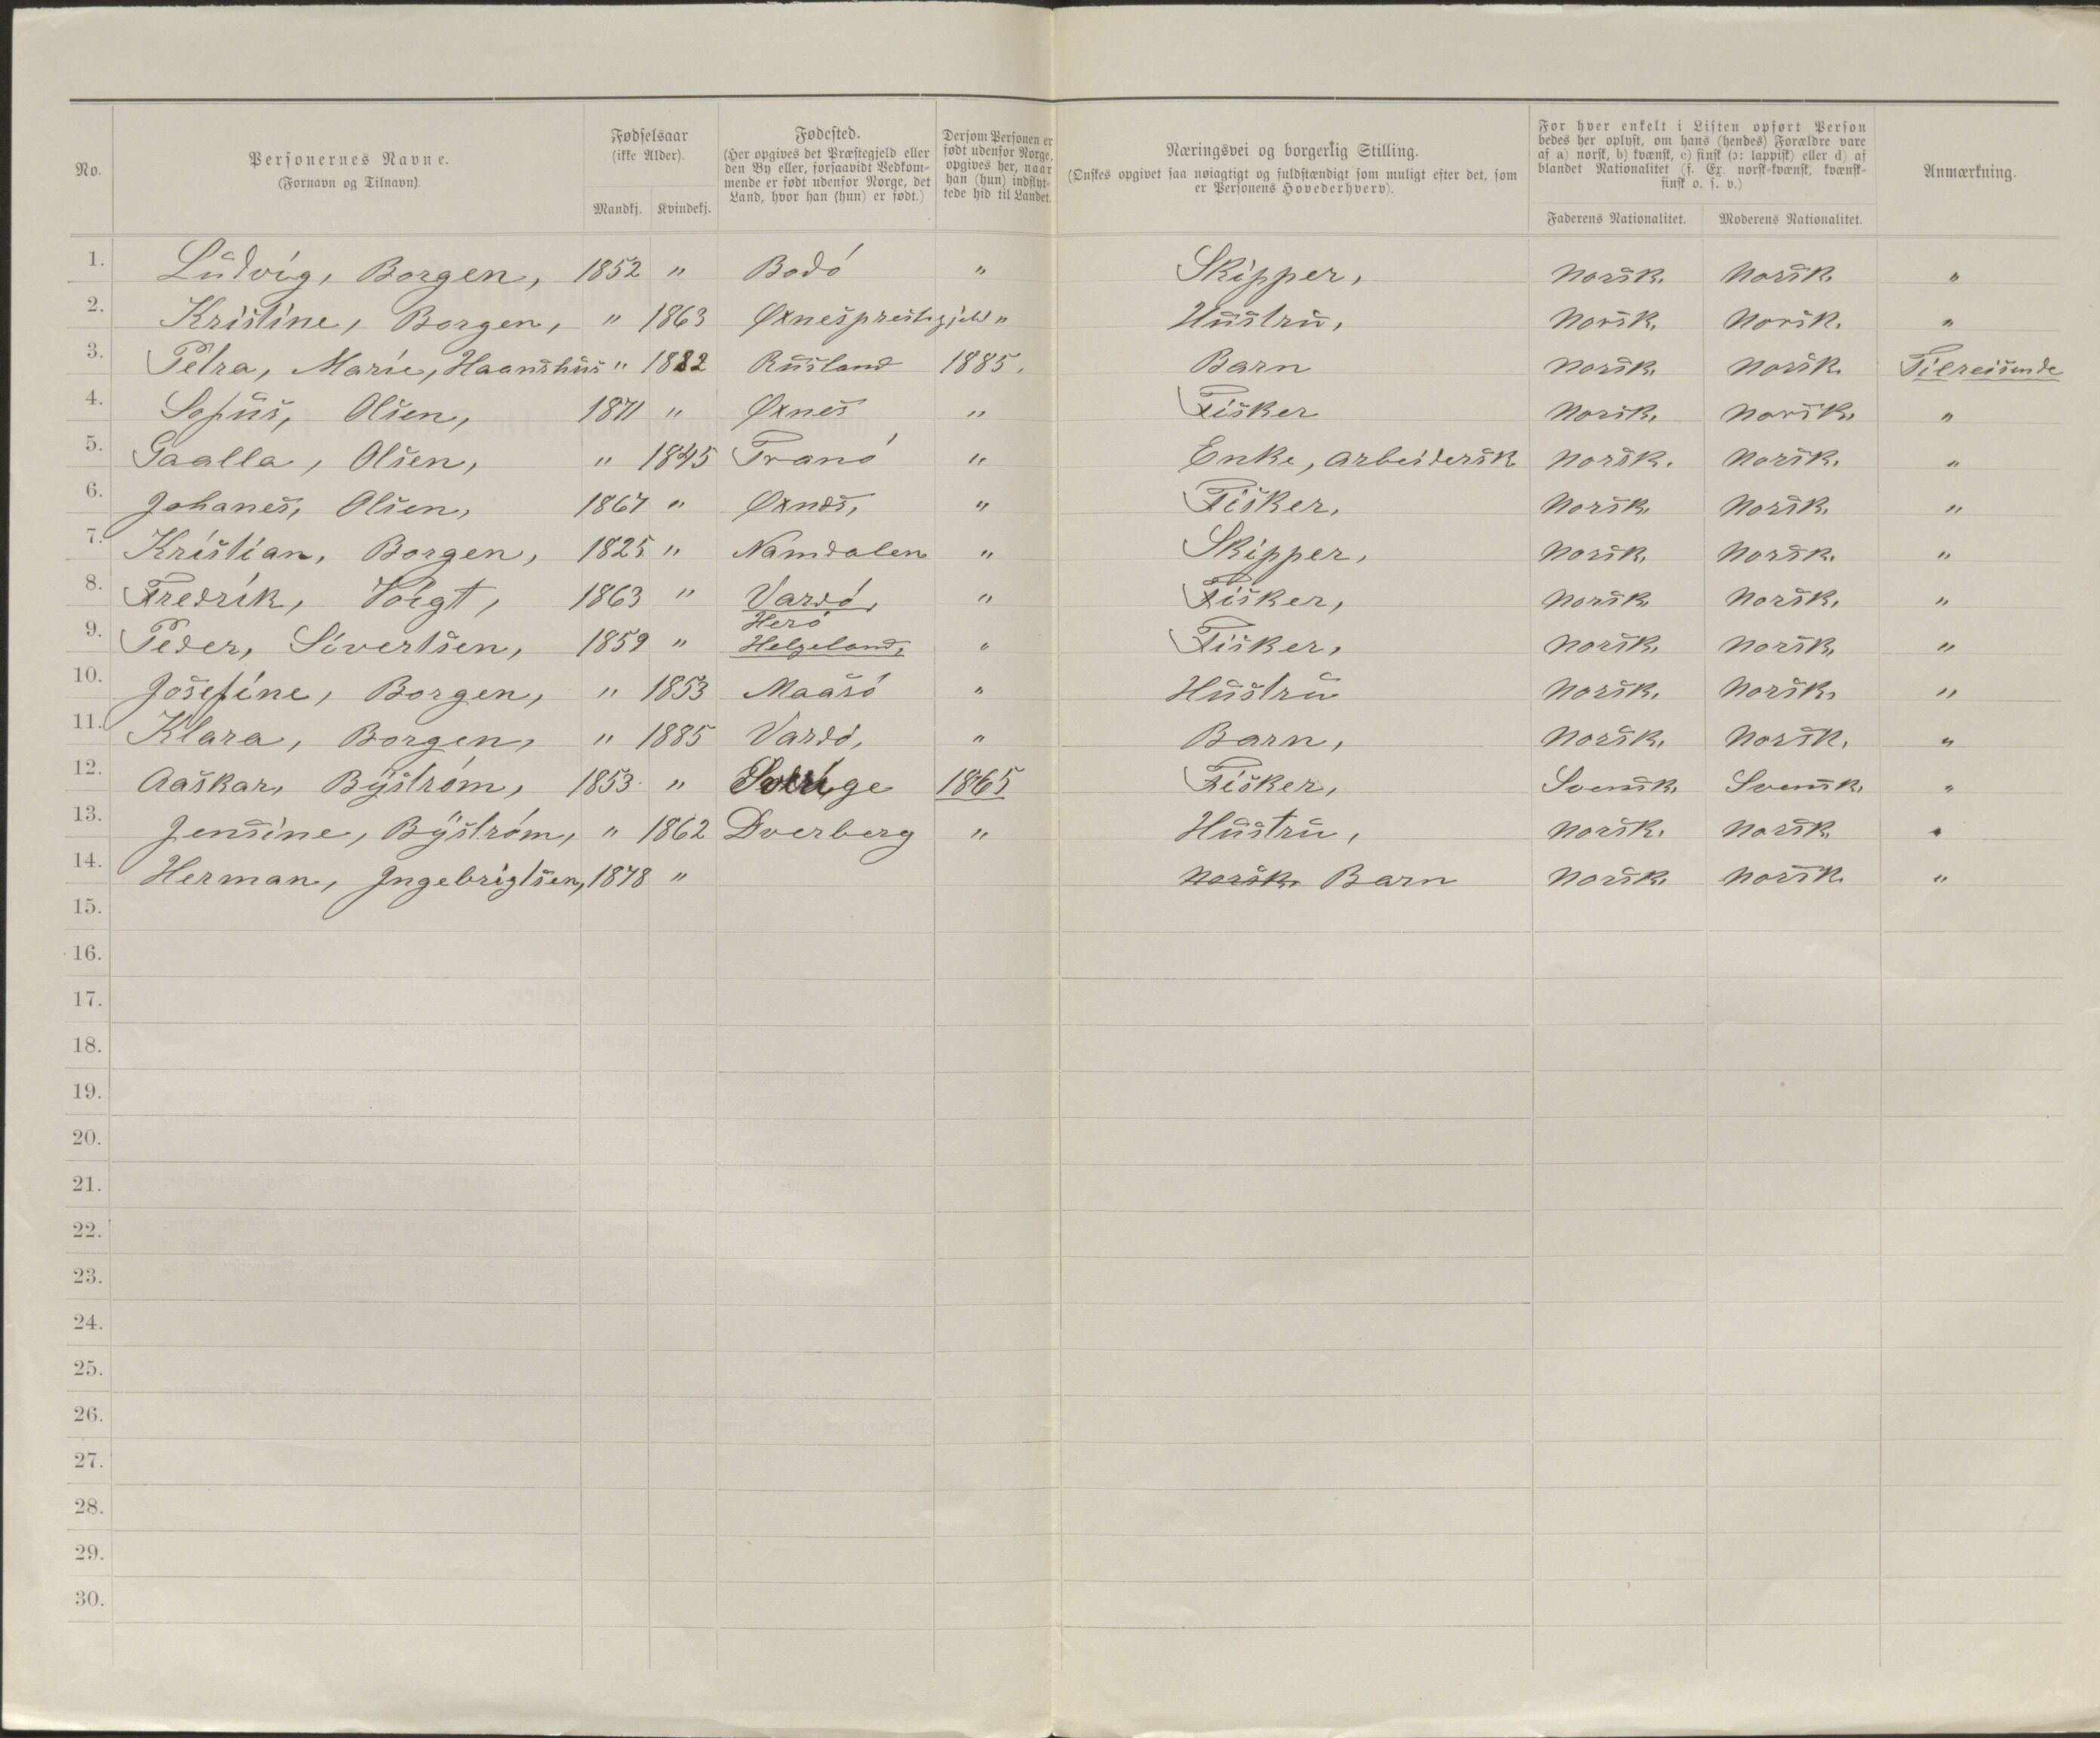 No.
Personernes Navne.
(Fornavn og Tilnavn).
Fødselsaar
(ikke Alder).
Mandkj. Kvindekj.
Fødested.
(Her opgives det Præstegjeld eller
den By eller, forsaavidt Vedkom-
mende er født udenfor Norge, det
Land, hvor han (hun) er født.)
Dersom Personen er
født udenfor Norge,
opgives her, naar
han (hun) indflyt-
tede hid til Landet.
Næringsvei og borgerlig Stilling.
(Ønskes opgivet saa nøiagtigt og fuldstændigt som muligt efter det, som
er Personens Hovederhverv).
For hver enkelt i Listen opført Person
bedes her oplyst, om hans (hendes) Forældre vare
af a) norsk, b) kvænsk, c) finsk (ɔ: lappisk) eller d) af
blandet Nationalitet (f. Ex. norsk-kvænsk, kvænsk-
finsk o. s. v.)
Faderens Nationalitet. Moderens Nationalitet.
Anmærkning.
1. Ludvig, Borgen, 1852 " Bodó " Skipper, Norsk. Norsk. "
2. Kristine, Borgen, " 1863 Øxnesprestegjeld " Hustru, Norsk. Norsk. "
3. Petra, Marie, Haanshus " 1882 Rusland 1885. Barn Norsk. Norsk. Tilreisende
4. Sofus, Olsen, 1871 " Øxnes " Fisker Norsk. Norsk. "
5. Gaalla, Olsen, " 1845 Tranó " Enke, Arbeidersk Norsk. Norsk. "
6. Johanes, Olsen, 1867 " Øxnes, " Fisker, Norsk. Norsk. "
7. Kristian, Borgen, 1825 " Namdalen " Skipper, Norsk. Norsk. "
8. Fredrik, Voigt, 1863 " Vardó, " Fisker, Norsk. Norsk. "
Heró
9. Peder, Sivertsen, 1859 " Helgeland, " Fisker, Norsk. Norsk. "
10. Josefine, Borgen, " 1853 Maasó " Hustru Norsk. Norsk. "
11. Klara, Borgen, " 1885 Vardó, " Barn, Norsk. Norsk. "
12. Aaskar, Byström, 1853 " Sverige 1865 Fisker, Svensk. Svensk. "
13. Jensine, Byström, " 1862 Dverberg " Hustru, Norsk. Norsk. "
14. Herman, Ingebrigtsen, 1878 " Norsk. Barn Norsk. Norsk. "
15.
16.
17.
18.
19.
20.
21.
22.
23.
24.
25.
26.
27.
28.
29.
30.